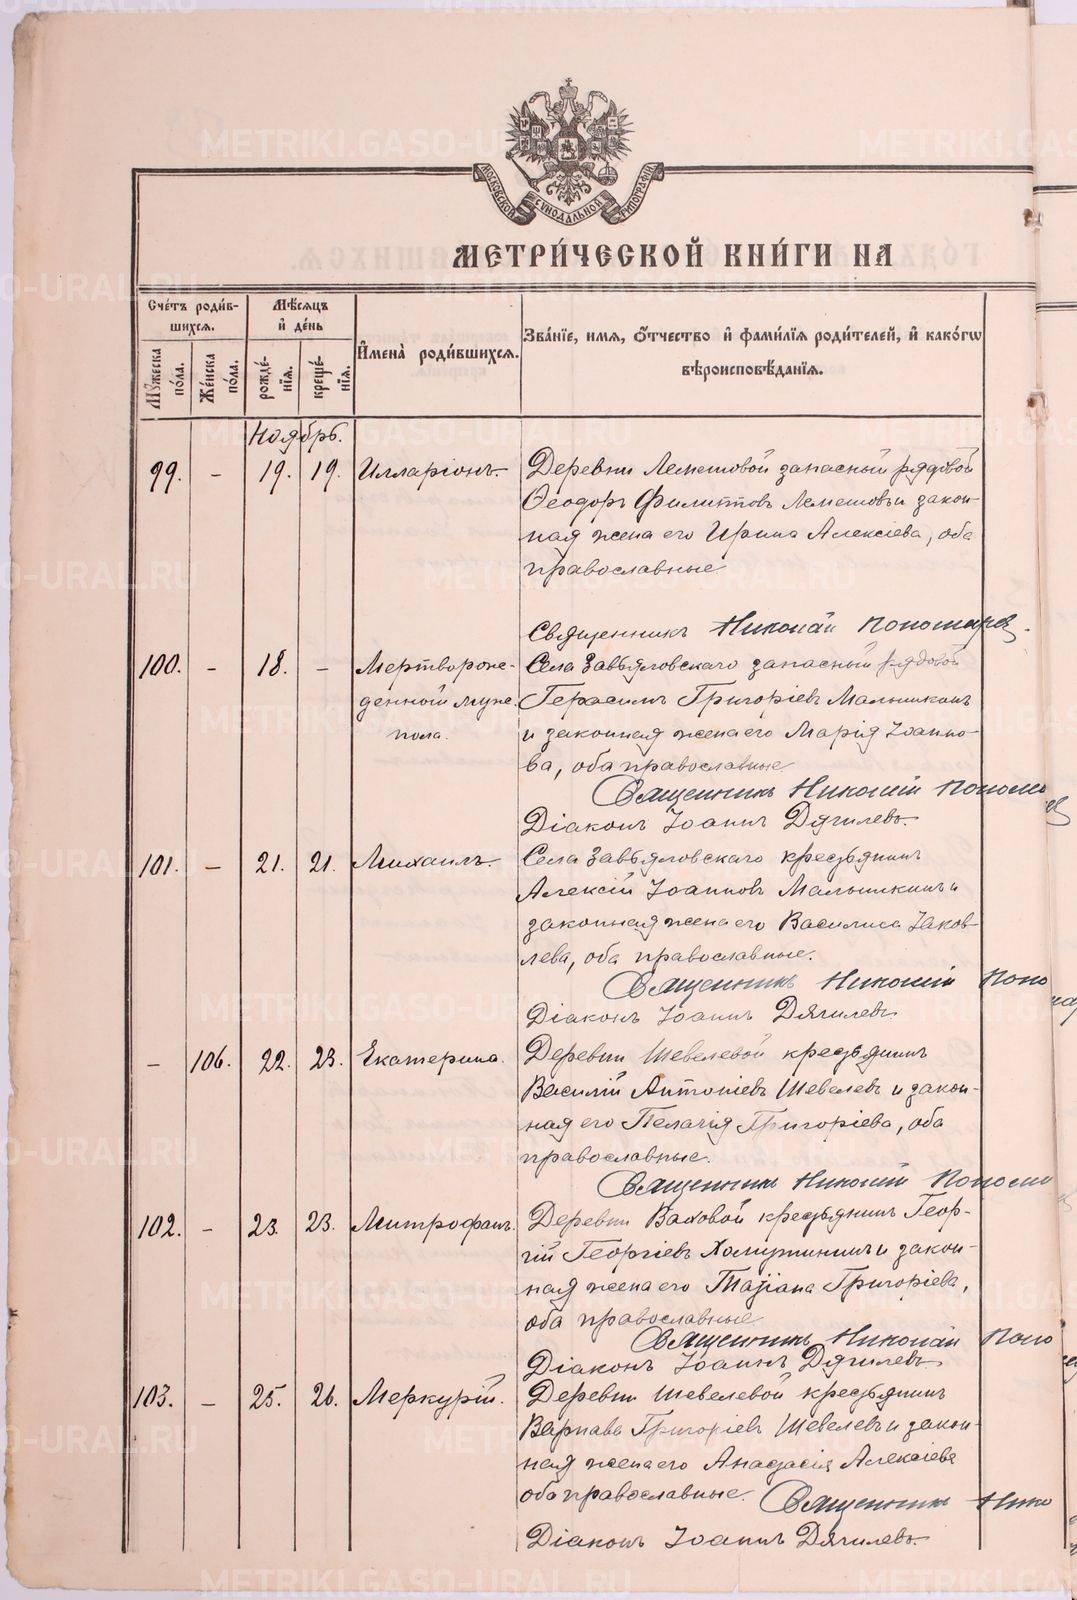 МОСКОВСКОЙ СѴНОДАЛЬНОЙ ТИПОГРАФІИ
МЕТРИ́ЧЕСКОЙ КНИ́ГИ НА
Сче́тъ роди́в-
шихся.
Мѣ́сяцъ
и҆ де́нь
И҆мена̀ роди́вшихся.
Зва́нїе, имя, ѻ҆́тчество и҆ фами́лїя роди́телей, и҆ како́гѡ
вѣроисповѣ́данїя.
Мꙋ́жеска по́ла.
Же́нска по́ла.
рожде́-
нїя.
креще́-
нїя.
Ноябрь.
99. – 19. 19. Илларіонъ. Деревни Лемешовой запасный рядовой
Ѳеодоръ Филипповъ Лемешовъ и закон-
ная жена его Ирина Алексіева, оба
православные
Священникъ Николай Пономарев.
100. – 18. – Мертворож- Села Завьяловскаго запасный рядовой
денной муж. Герасимъ Григоріевъ Малышкинъ
пола. и законная жена его Марія Іоанно-
ва, оба православные
Священникъ Николай Пономарев
Діаконъ Іоаннъ Дягилевъ.
101. – 21. 21. Михаилъ. Села Завьяловскаго крестьянинъ
Алексій Іоанновъ Малышкинъ и
законная жена его Василиса Іаков-
лева, оба православные.
Священникъ Николай Поно
Діаконъ Іоаннъ Дягилевъ
– 106. 22. 23. Екатерина. Деревни Шевелевой крестьянинъ
Василій Антоніевъ Шевелевъ и закон-
ная его Пелагія Григоріева, оба
православные.
Священникъ Николай Поном
102. – 23. 23. Митрофанъ. Деревни Ваховой крестьянинъ Геор-
гій Георгіевъ Хомутининъ и закон-
ная жена его Татіана Григоріева,
оба православные
Священникъ Николай Поно
Діаконъ Іоаннъ Дягилевъ
103. – 25. 26. Меркурій. Деревни Шевелевой крестьянинъ
Варнава Григоріевъ Шевелевъ и закон-
ная жена его Анастасія Алексіева
оба православные. Священникъ Нико
Діаконъ Іоаннъ Дягилевъ.
METRIKI.GASO-URAL.RU